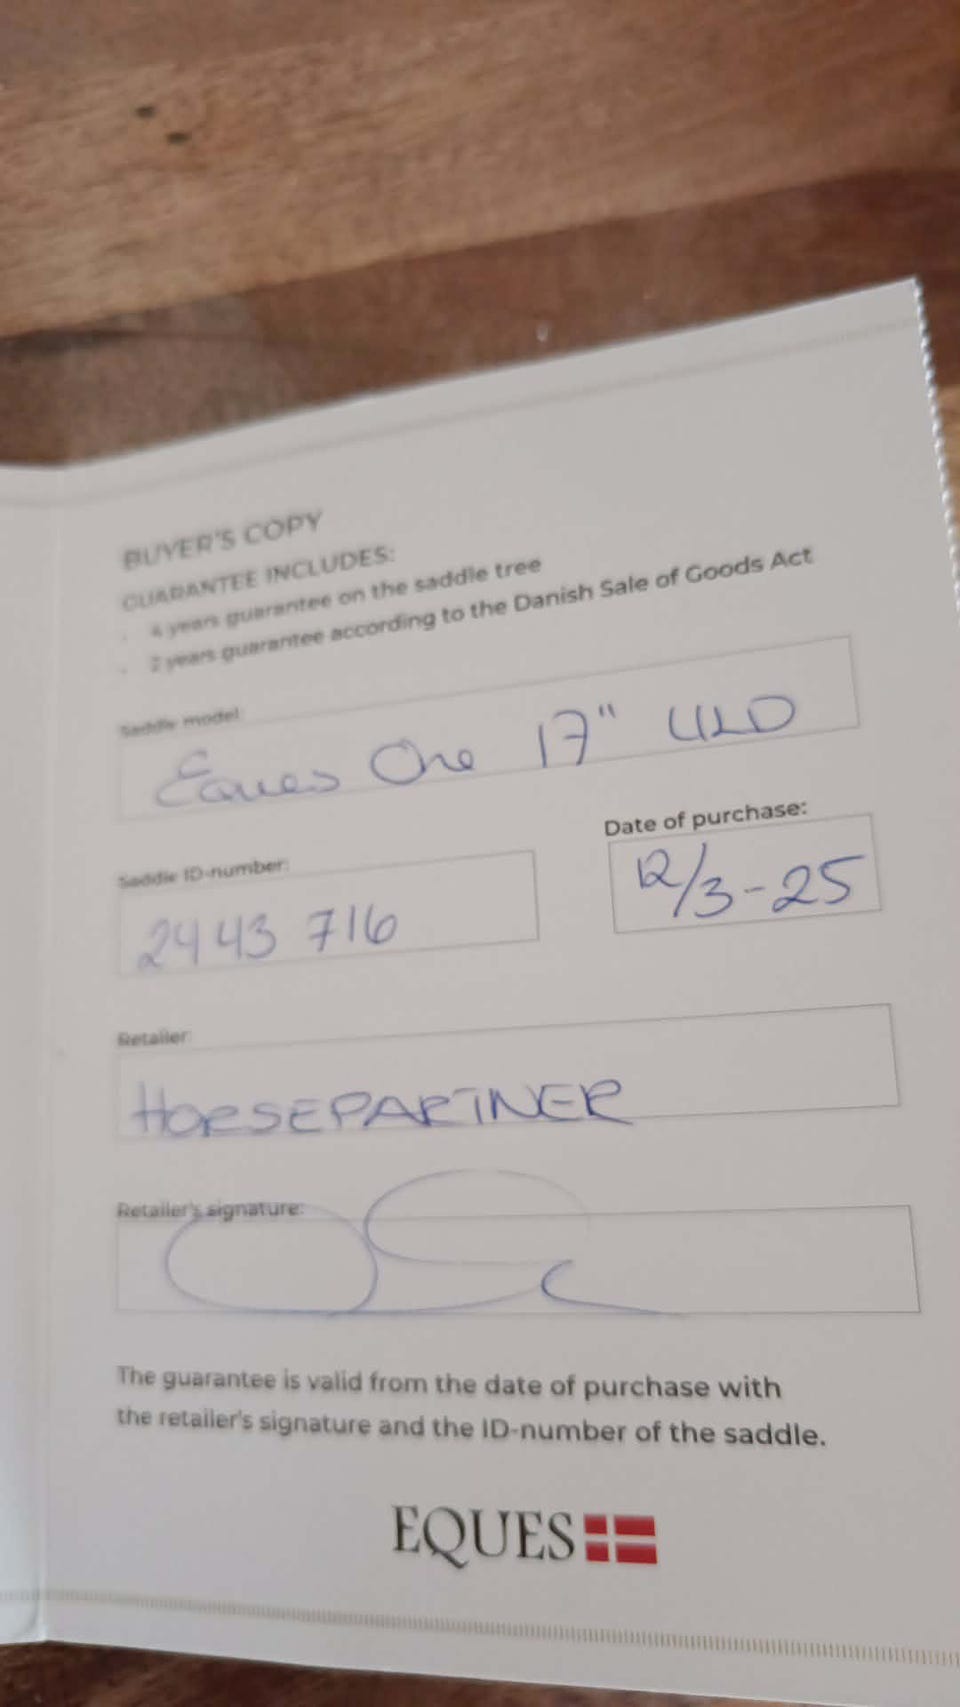 BUYER'S COPY
GUARANTEE INCLUDES:
· 4 years guarantee on the saddle tree
· 2 years guarantee according to the Danish Sale of Goods Act
Saddle model:
Eques One 17" ULD
Saddle ID-number:
Date of purchase:
2443 716
12/3-25
Retailer:
HORSEPARTNER
Retailer's signature:
The guarantee is valid from the date of purchase with
the retailer's signature and the ID-number of the saddle.
EQUES